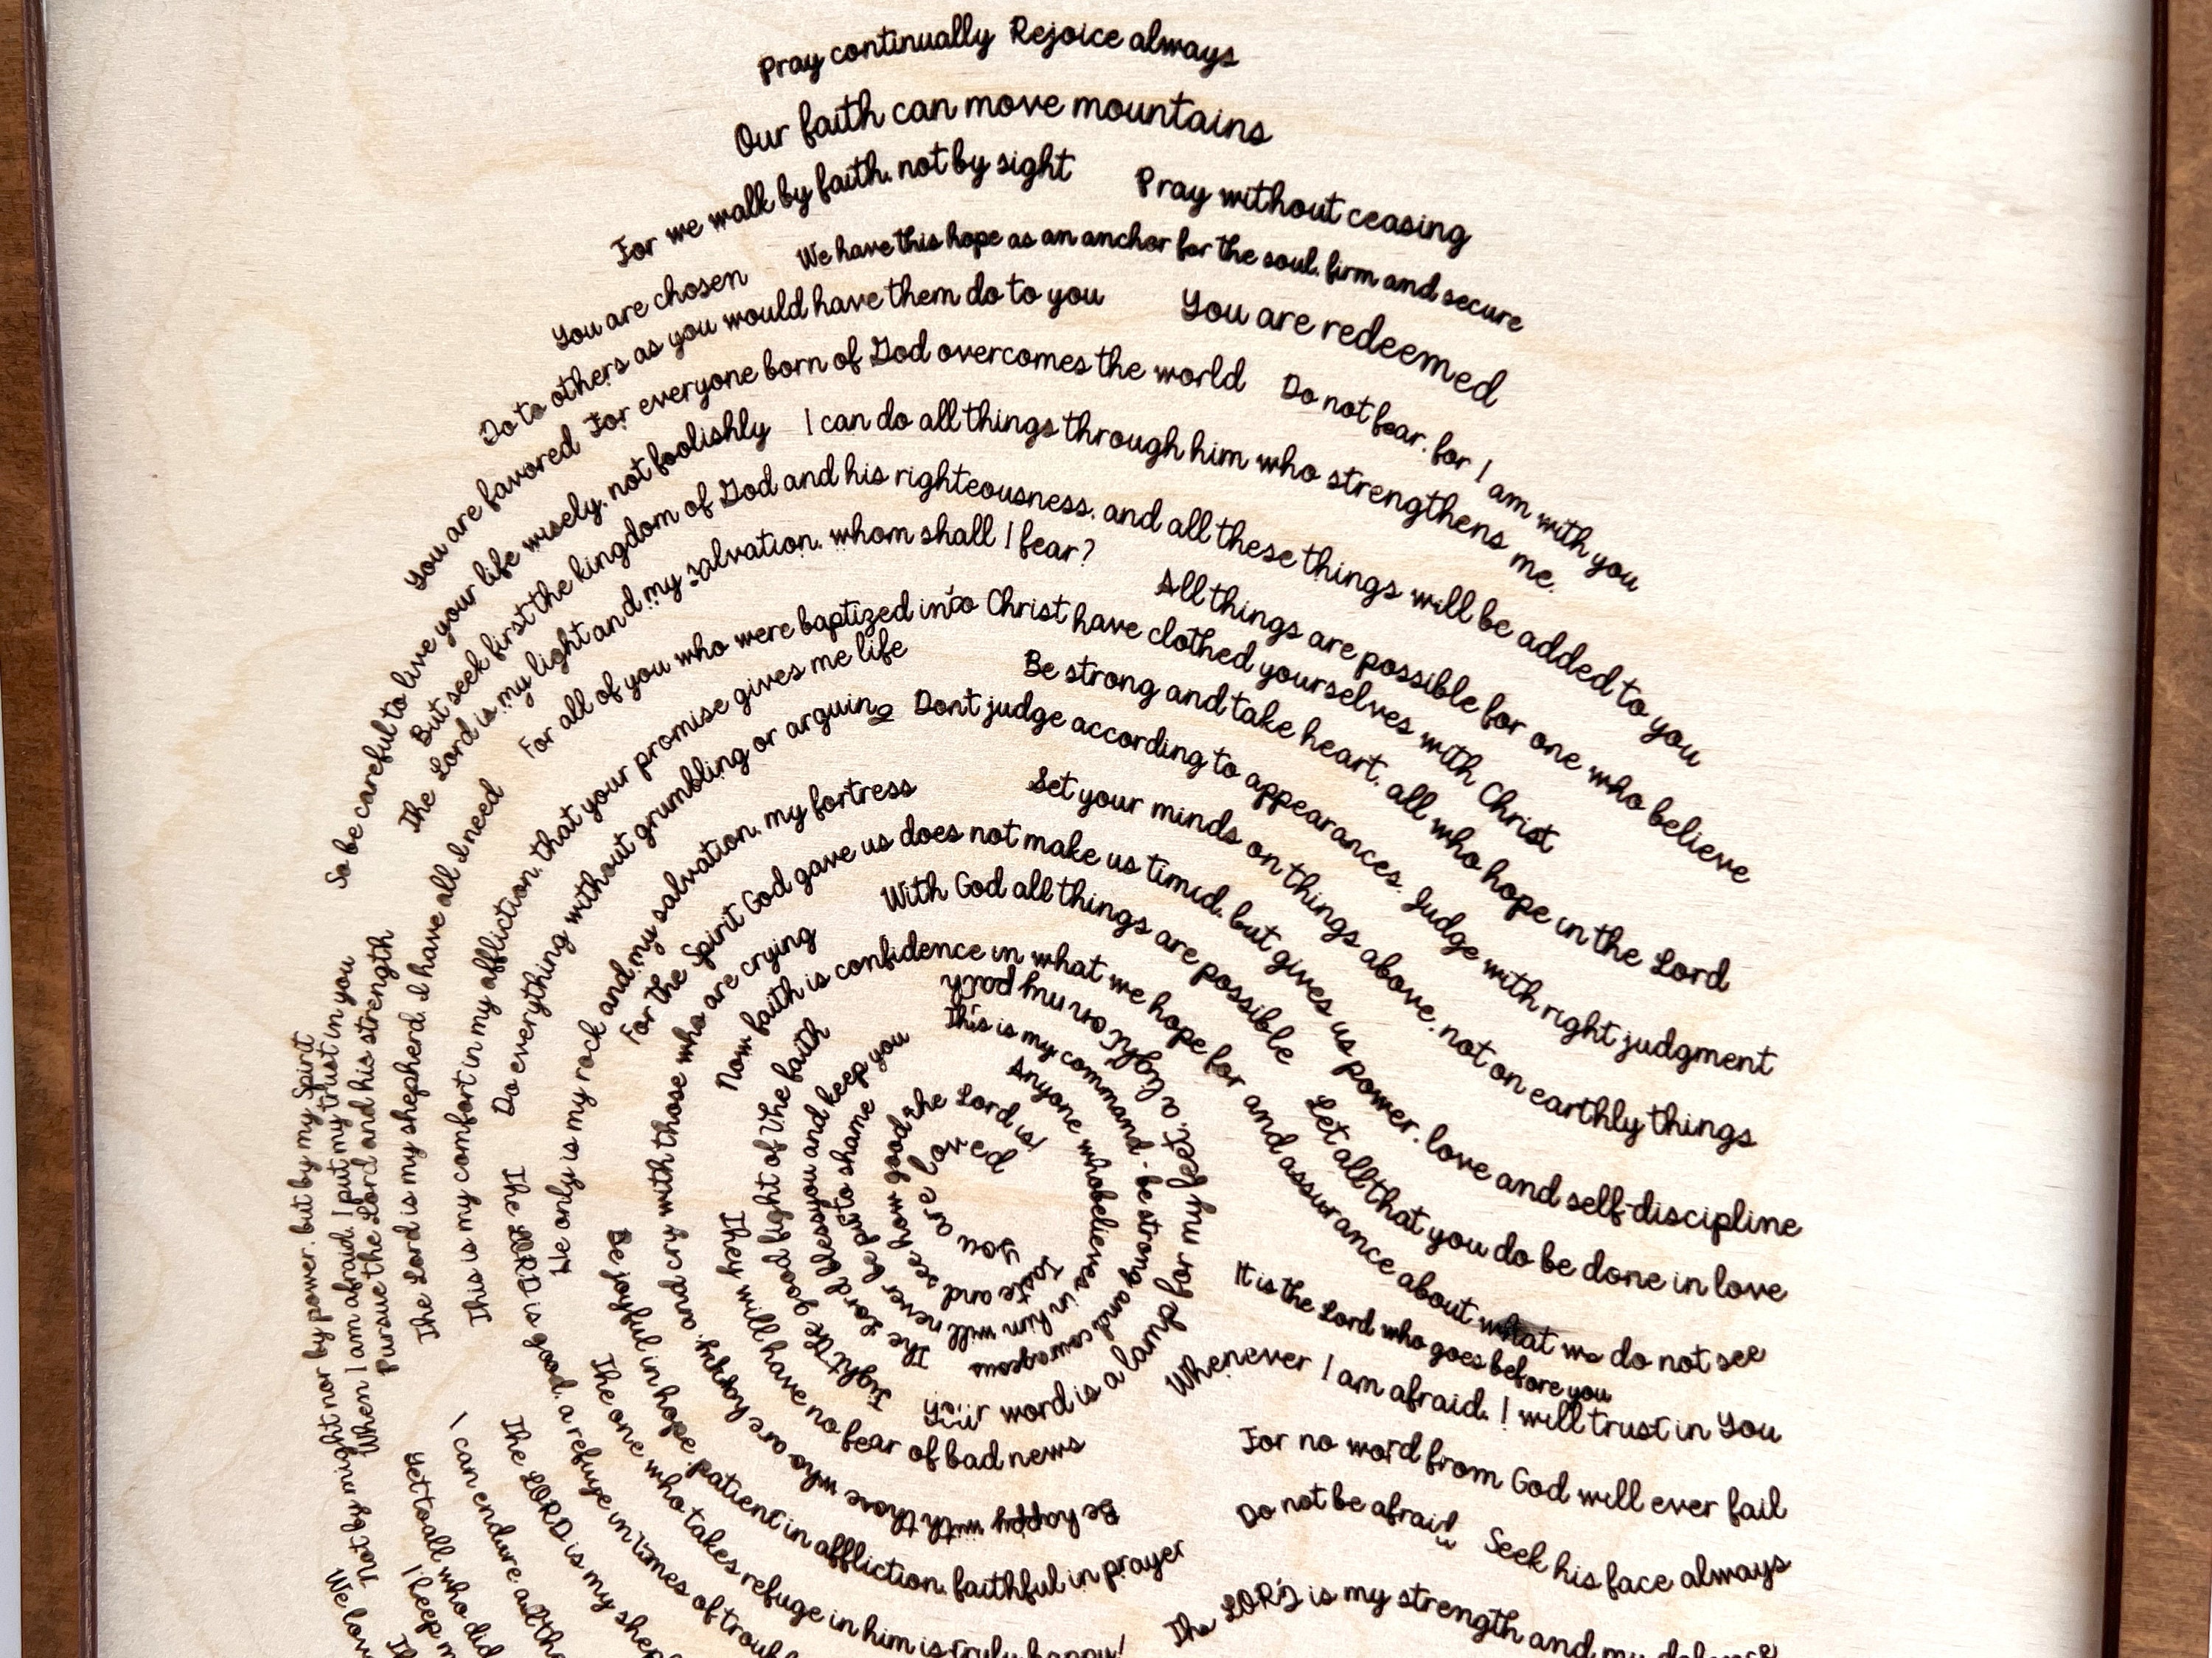 Pray continually Rejoice always
Our faith can move mountains
For we walk by faith, not by sight
Pray without ceasing
You are chosen
We have this hope as an anchor for the soul, firm and secure
Do to others as you would have them do to you
You are redeemed
You are favored
For everyone born of God overcomes the world
Do not fear, for I am with you
So be careful to live your life wisely, not foolishly
I can do all things through him who strengthens me.
But seek first the kingdom of God and his righteousness, and all these things will be added to you
The Lord is my light and my salvation, whom shall I fear?
All things are possible for one who believe
The Lord is my shepherd, I have all I need
For all of you who were baptized into Christ have clothed yourselves with Christ
This is my comfort in my affliction, that your promise gives me life
Be strong and take heart, all who hope in the Lord
Do everything without grumbling or arguing
Dont judge according to appearances. Judge with right judgment
He only is my rock and my salvation, my fortress
Set your minds on things above, not on earthly things
For the Spirit God gave us does not make us timid, but gives us power, love and self-discipline
Be happy with those who are happy, and cry with those who are crying
With God all things are possible
Let all that you do be done in love
Now faith is confidence in what we hope for and assurance about what we do not see
Your word is a lamp for my feet, a light on my path
This is my command - be strong and courageous
Fight the good fight of the faith
The Lord bless you and keep you
Anyone who believes in him will never be put to shame
Taste and see how good the Lord is!
You are loved
They will have no fear of bad news
Be joyful in hope, patient in affliction, faithful in prayer
The one who takes refuge in him is truly happy!
The LORD is good, a refuge in times of troubl
The LORD is my shep
I can endure all th
Not by might nor by power, but by my Spirit
When I am afraid, I put my trust in you
Pursue the Lord and his strength
It is the Lord who goes before you
Whenever I am afraid, I will trust in You
For no word from God will ever fail
Do not be afraid
Seek his face always
The LORD is my strength and my defence
to all who did
I keep m
We lov